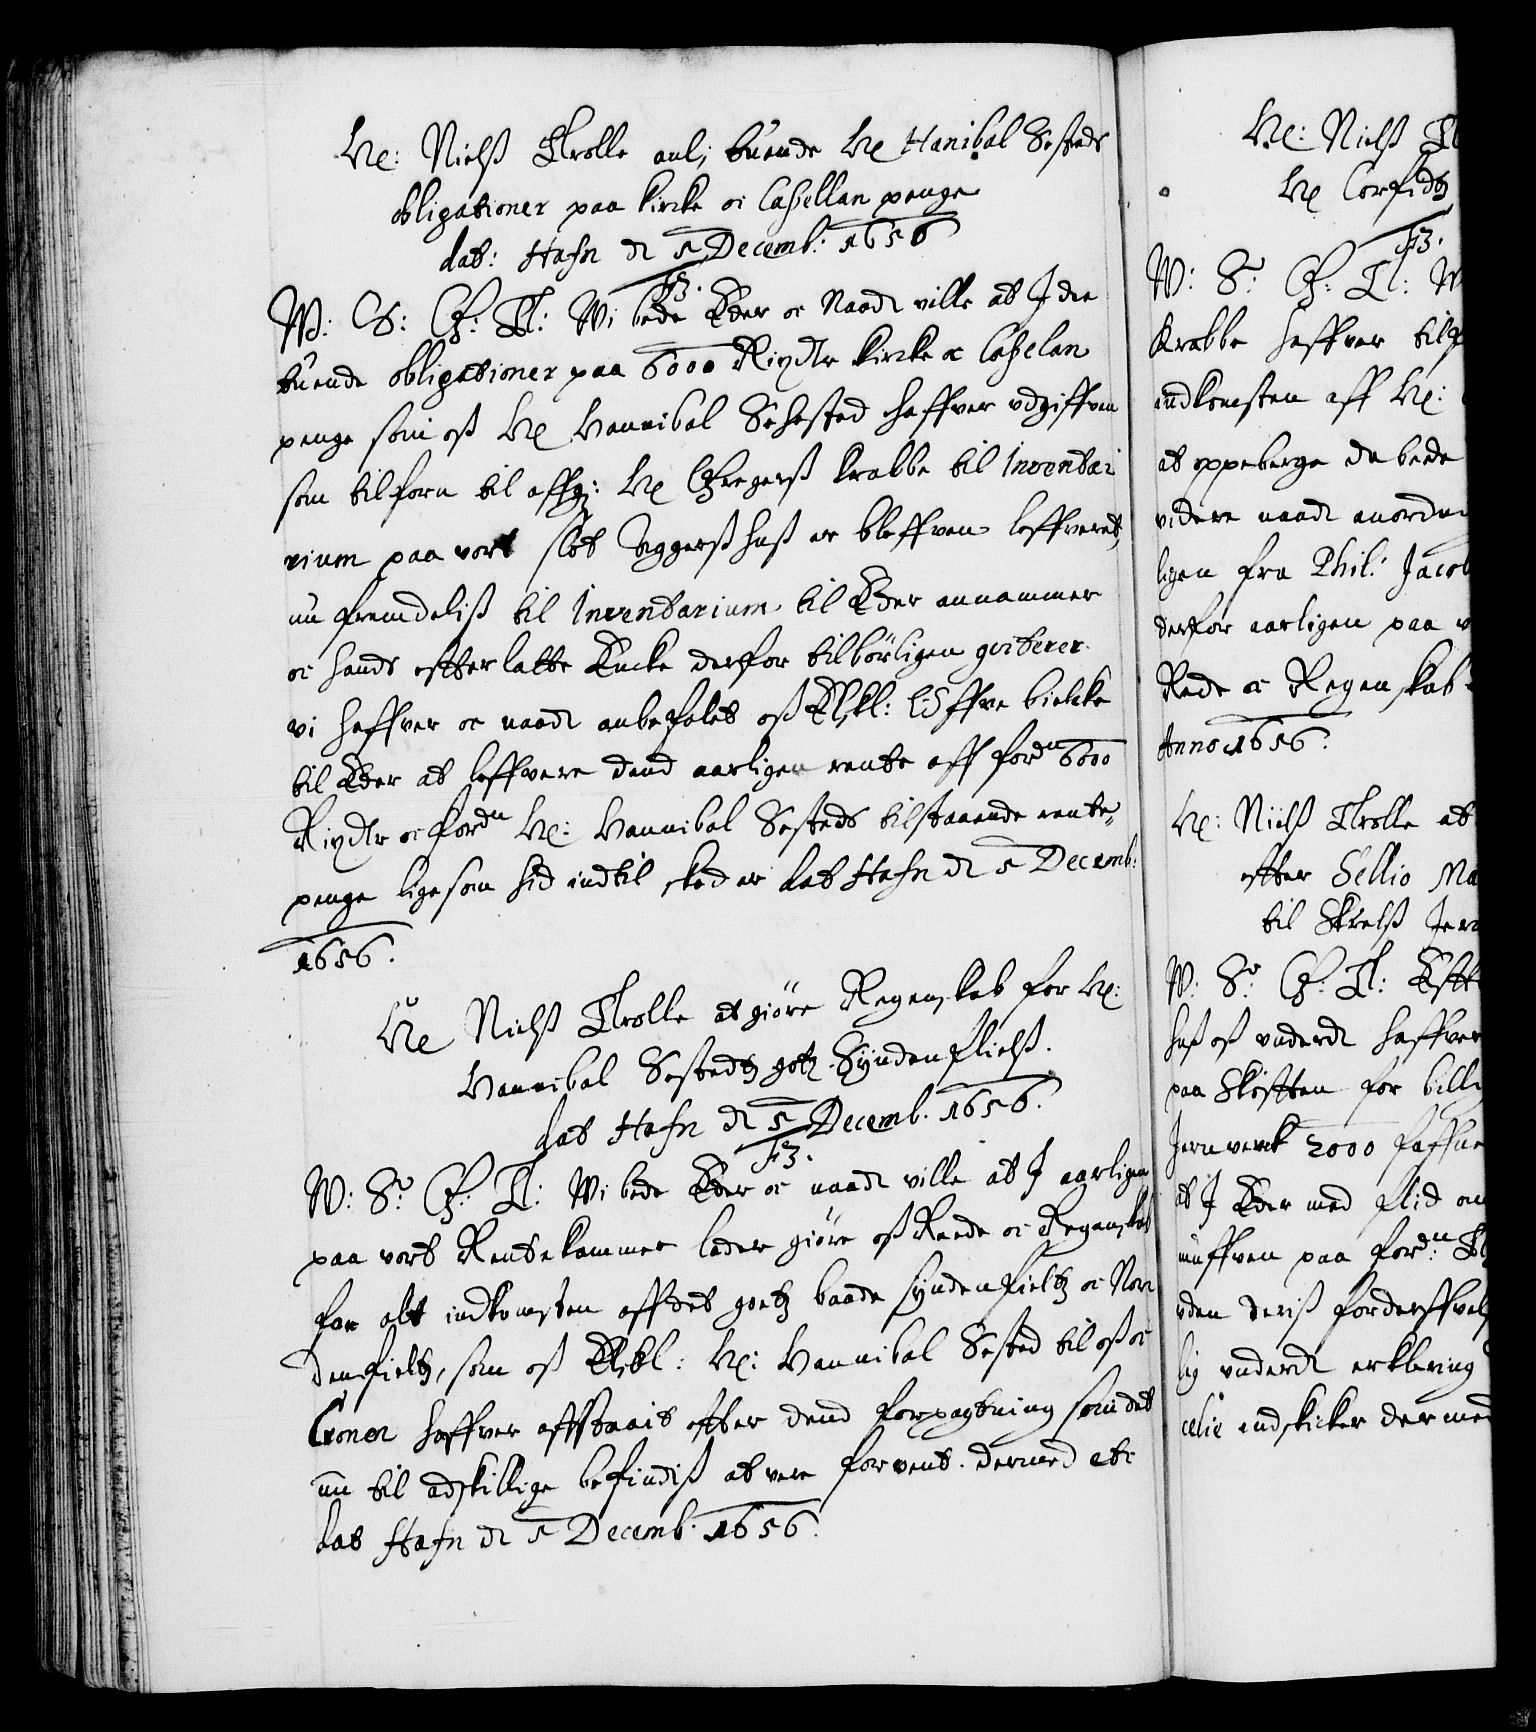 He: Nielß Trolle anl: tuende He Hanibal Sesteds
obligationer paa kircke oc Capellan penge
dat: Hafn d 5 Decemb: 1656
F3.
W: S: G: T: Wi bede Eder oc Naadl ville at I die
tuende obligationer paa 6000 Rixdlr kircke oc Capelan
penge som oß He Hannibal Sehested haffver udgiffven
som tilforn til affg: He Gregerß Krabbe til Inventari
rium paa vort slot Aggerßhuß er bleffven leffveret,
nu fremdeliß til Inventarium til Eder annammer
oc hands effterlatte Encke derfor tilbörligen qviterer.
vi haffver oc naadl anbefalet oß Elskl: Offve bielcke
til Eder at leffvere dend aarligen rente aff fordn 6000
Rixdlr oc fordn He: Hannibal Sesteds tilstaaende rente„
penge ligesom hid indtil skeed er dat Hafn d 5 Decemb:
1656.
He Nielß Trolle at giöre Regenskab for He:
Hannibal Sestedtz gotz Syndenfielß.
dat Hafn d 5 Decemb. 1656.
F3.
W: S: G: T: Wi bede Eder oc naadl ville at I aarligen
paa vort Rentekammer lader giöre oß Rede oc Regenskab
for alt indkomsten aff det goetz baade syndenfieltz oc Nor
denfieltz, som oß Elskl: He: Hannibal Sested til oß oc
Cronen haffver affstaait effter dend forpagtning som det
nu til adskillige befindiß at vere forvent. dermed etc
dat Hafn d 5 Decemb. 1656.
He: Nielß
He Corfidtz
F3.
W: S: G: T: W
Krabbe haffver
indkomsten aff He:
at oppeberge da bede
videre naadl
ligen fra Phil: Jacob
derfor aarligen paa
Rede oc Regenskab
Anno 1656.
He: Nielß Trolle at
effter Sellio Ma
til
W: S: G: T: Efft
huß oß underdl haffver
paa Sköytten for
Jernverck 2000
at I Eder med flid
paa fordn
uden deriß forderffvelß
lig underdl erklering
indskicker dermed